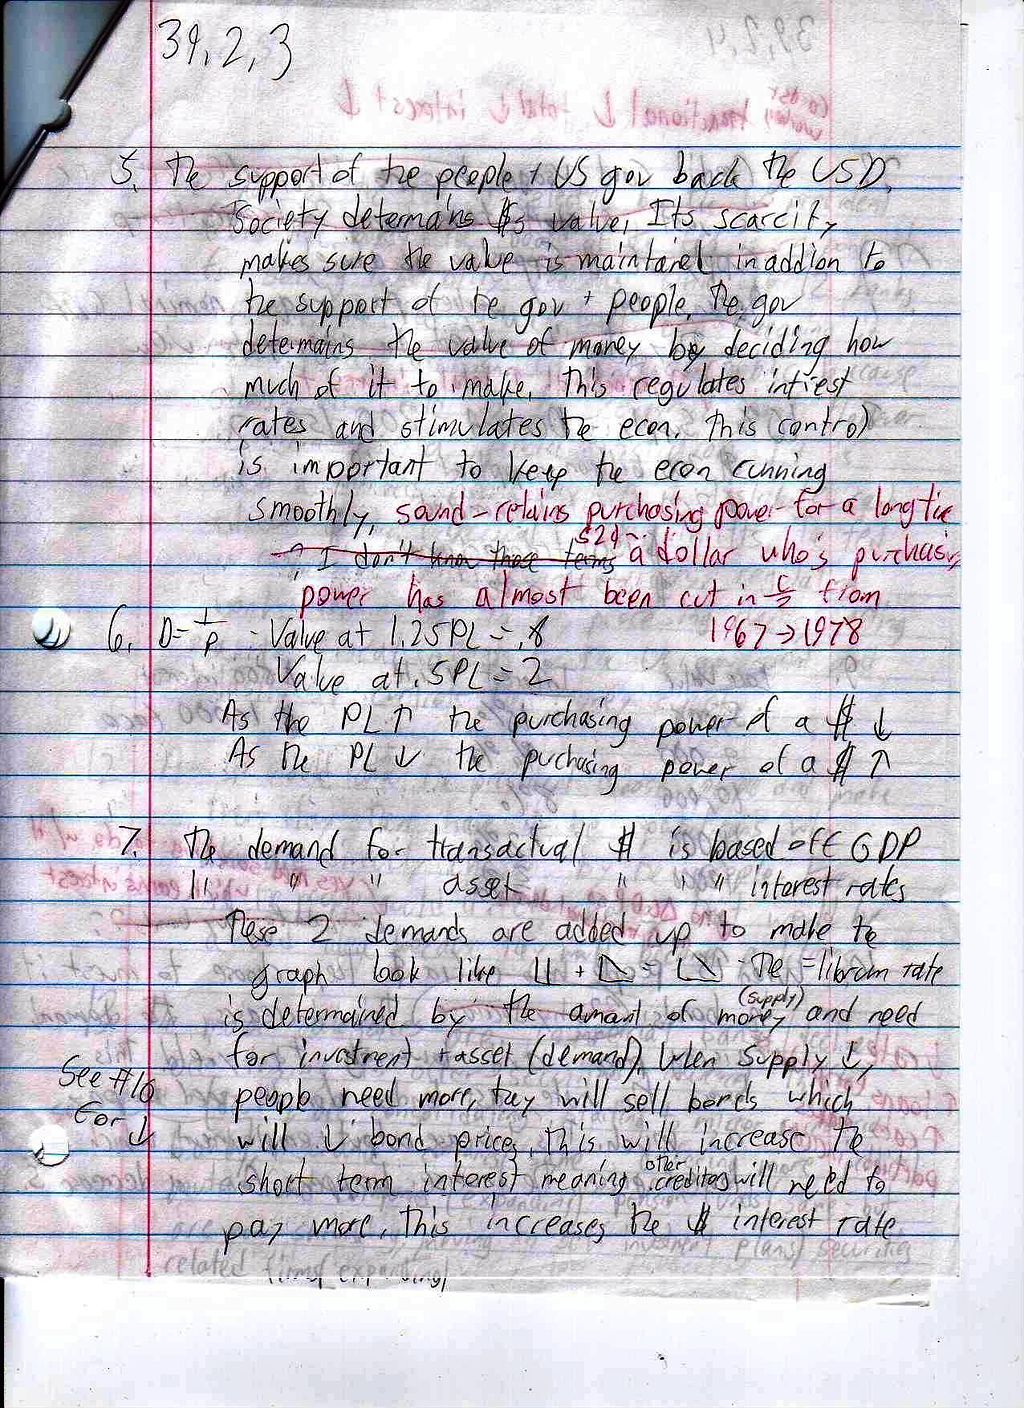 39, 2, 3
5. The support of the people + US gov back the USD.
Society determains $s value, Its scarcity
makes sure the value is maintaned in addion to
the support of te gov + people. The gov
determains the value of money by deciding how
much of it to make. This regulates intrest
rates and stimulates the econ. This control
is important to keep the econ running
smoothly, sound - retains purchasing power for a long time
I don't know those terms 529 - a dollar who's purchasing
power has almost been cut in from
1967 → 1978
6. D = 1/P - Value at 1.25 PL = .8
Value at .5 PL = 2
As the PL ↑ the purchasing power of a $ ↓
As the PL ↓ the purchasing power of a $ ↑
7. The demand for transactual $ is based off GDP
" " " asset " " " interest rates
These 2 demands are added up to make the
graph look like + = . The = librum rate
is determained by the amant of money (supply) and need
for investment + asset (demand). When supply ↓,
See #10
people need more, they will sell bonds which
for ↓
will ↓ bond prices, this will increase the
short term interest meaning other creditos will need to
pay more. This increases the $ interest rate
related firms expanding)